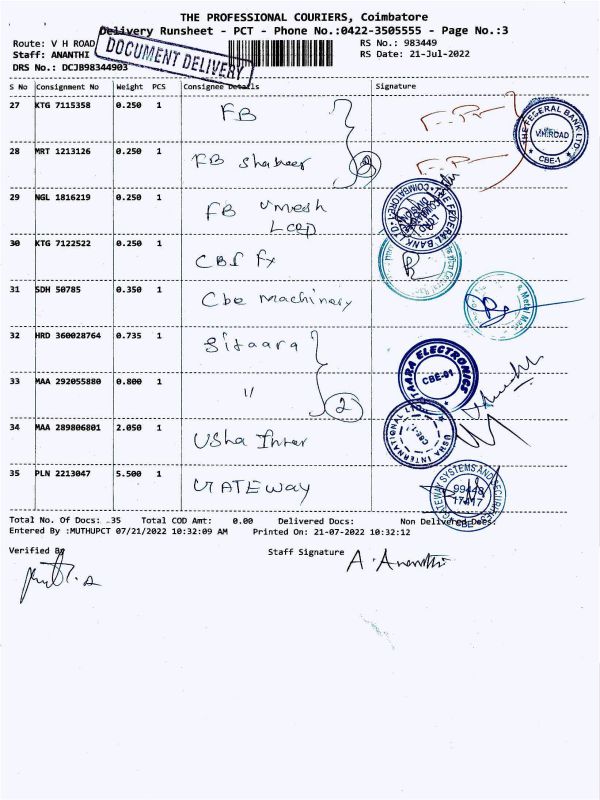 THE PROFESSIONAL COURIERS, Coimbatore
Delivery Runsheet - PCT - Phone No.:0422-3505555 - Page No.:3
Route: V H ROAD
RS No.: 983449
Staff: ANANTHI
RS Date: 21-Jul-2022
DRS No.: DCJB98344903
DOCUMENT DELIVERY
S No Consignment No Weight PCS Consignee Details Signature
27 KTG 7115358 0.250 1 FB
THE FEDERAL BANK LTD. V.H.ROAD CBE-1
28 MRT 1213126 0.250 1 FB Shabeer 2
29 NGL 1816219 0.250 1 FB Umesh
LCRD
THE FEDERAL BANK LTD. COIMBATORE
30 KTG 7122522 0.250 1 CBS Fx
31 SDH 50785 0.350 1 Cbe Machinery
& Metal
32 HRD 360028764 0.735 1 Sitaara
SITAARA ELECTRONICS CBE-01
33 MAA 292055880 0.800 1 " 2
34 MAA 289806801 2.050 1 Usha Inter
USHA INTERNATIONAL LTD. CBE-1
35 PLN 2213047 5.500 1 GATEWAY
GATEWAY SYSTEMS AND SECURITIES CBE
Total No. Of Docs: 35 Total COD Amt: 0.00 Delivered Docs: Non Delivered Docs:
Entered By :MUTHUPCT 07/21/2022 10:32:09 AM Printed On: 21-07-2022 10:32:12
Verified By
Staff Signature A. Ananthi